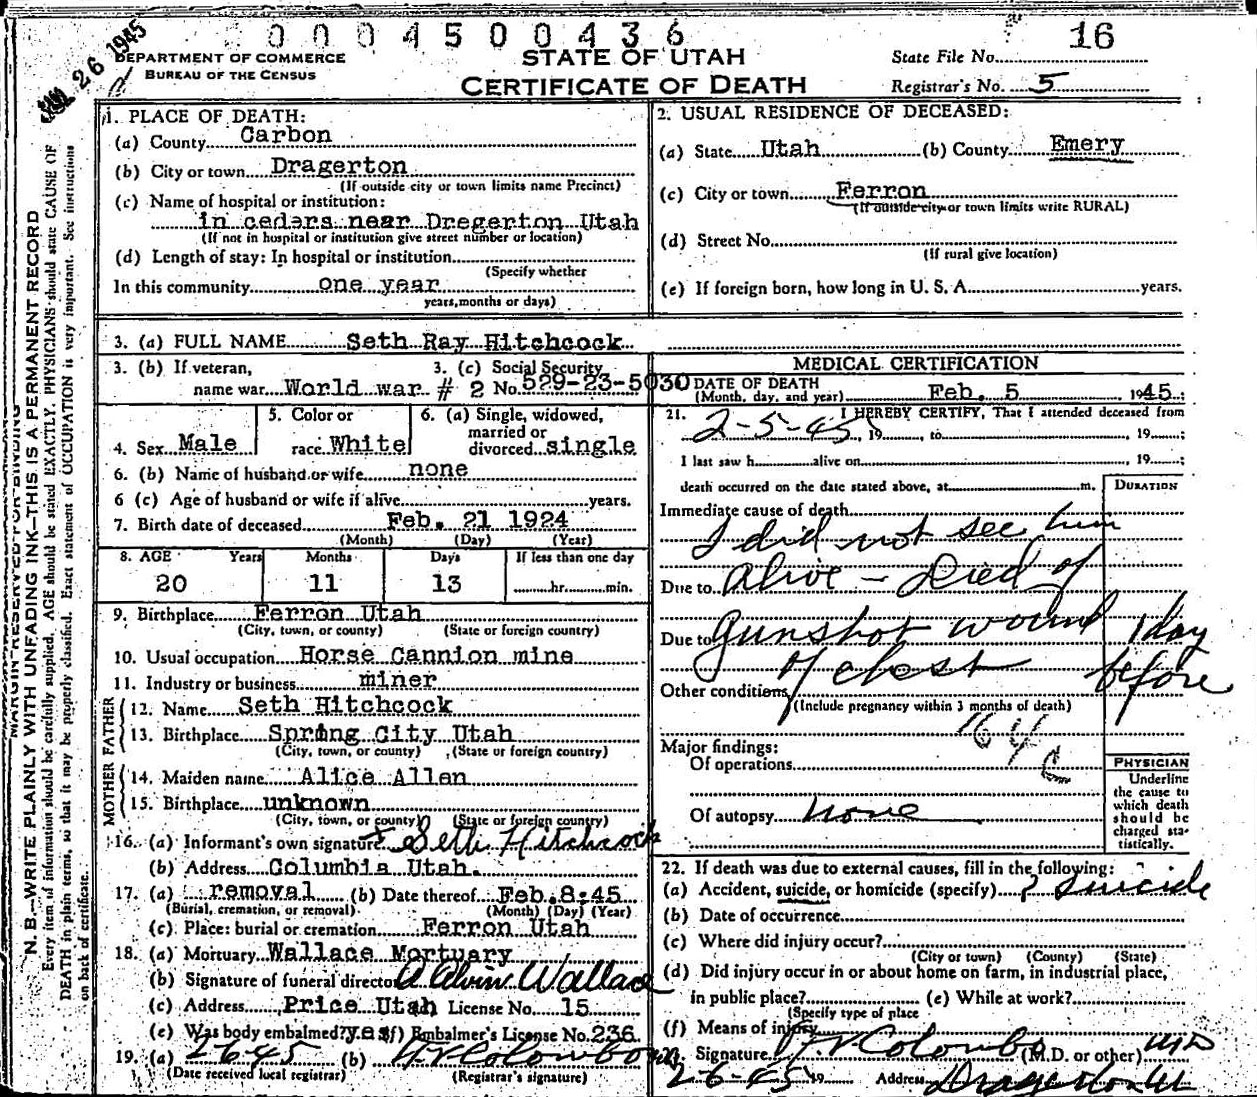 0 0 0 4 5 0 0 4 3 6
26 1945
DEPARTMENT OF COMMERCE
BUREAU OF THE CENSUS
STATE OF UTAH
CERTIFICATE OF DEATH
State File No. 16
Registrar's No. 5
MARGIN RESERVED FOR BINDING
N. B.—WRITE PLAINLY WITH UNFADING INK—THIS IS A PERMANENT RECORD
Every item of information should be carefully supplied. AGE should be stated EXACTLY. PHYSICIANS should state CAUSE OF
DEATH in plain terms, so that it may be properly classified. Exact statement of OCCUPATION is very important. See instructions
on back of certificate.
1. PLACE OF DEATH:
(a) County Carbon
(b) City or town Dragerton
(If outside city or town limits name Precinct)
(c) Name of hospital or institution:
in cedars near Dregerton Utah
(If not in hospital or institution give street number or location)
(d) Length of stay: In hospital or institution
(Specify whether
In this community one year
years, months or days)
2. USUAL RESIDENCE OF DECEASED:
(a) State Utah (b) County Emery
(c) City or town Ferron
(If outside city or town limits write RURAL)
(d) Street No.
(If rural give location)
(e) If foreign born, how long in U. S. A. years.
3. (a) FULL NAME Seth Ray Hitchcock
3. (b) If veteran, name war World war # 2
3. (c) Social Security No. 529-23-5030
4. Sex Male
5. Color or race White
6. (a) Single, widowed, married or divorced single
6. (b) Name of husband or wife none
6 (c) Age of husband or wife if alive years.
7. Birth date of deceased Feb. 21 1924
(Month) (Day) (Year)
8. AGE Years Months Days If less than one day
20 11 13 hr. min.
9. Birthplace Ferron Utah
(City, town, or county) (State or foreign country)
10. Usual occupation Horse Cannion mine
11. Industry or business miner
FATHER
12. Name Seth Hitchcock
13. Birthplace Spring City Utah
(City, town, or county) (State or foreign country)
MOTHER
14. Maiden name Alice Allen
15. Birthplace unknown
(City, town, or county) (State or foreign country)
16. (a) Informant's own signature x Seth Hitchcock
(b) Address Columbia Utah.
17. (a) removal (b) Date thereof Feb.8:45
(Burial, cremation, or removal) (Month) (Day) (Year)
(c) Place: burial or cremation Ferron Utah
18. (a) Mortuary Wallace Mortuary
(b) Signature of funeral director A Alvin Wallace
(c) Address Price Utah License No. 15
(e) Was body embalmed? yes (f) Embalmer's License No. 236
19. (a) 2 6 45 (b) Colombo
(Date received local registrar) (Registrar's signature)
MEDICAL CERTIFICATION
DATE OF DEATH
(Month, day, and year) Feb. 5 1945
21. I HEREBY CERTIFY, That I attended deceased from
2-5-45, 19, to 19;
I last saw h alive on 19;
death occurred on the date stated above, at m. DURATION
Immediate cause of death
I did not see him
Due to alive - Died of
Due to gunshot wound 1 day
of chest before
Other conditions
(Include pregnancy within 3 months of death)
164c
Major findings:
Of operations
Of autopsy none
PHYSICIAN
Underline
the cause to
which death
should be
charged sta-
tistically.
22. If death was due to external causes, fill in the following:
(a) Accident, suicide, or homicide (specify) ? Suicide
(b) Date of occurrence
(c) Where did injury occur?
(City or town) (County) (State)
(d) Did injury occur in or about home on farm, in industrial place,
in public place? (e) While at work?
(Specify type of place
(f) Means of injury
Signature Colombo (M.D. or other) MD
2-6-45 19 Address Dragerton Ut